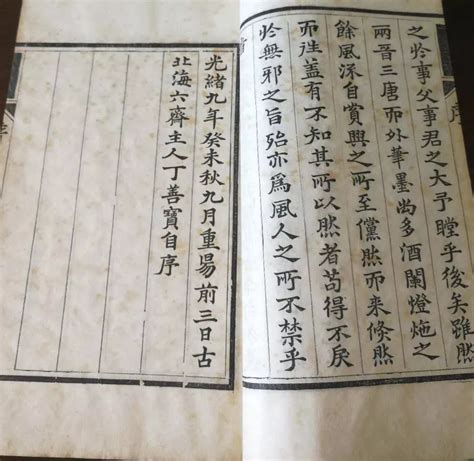 之於事父事君之大予瞠乎後矣雖然
兩晉三唐而外筆墨尚多酒闌燈炧之
餘風深自賞興之所至儻然而来倏然
而往蓋有不知其所以然者苟得不戾
於無邪之旨殆亦為風人之所不禁乎
光緒九年癸未秋九月重昜前三日古
北海六齋主人丁善寶自序